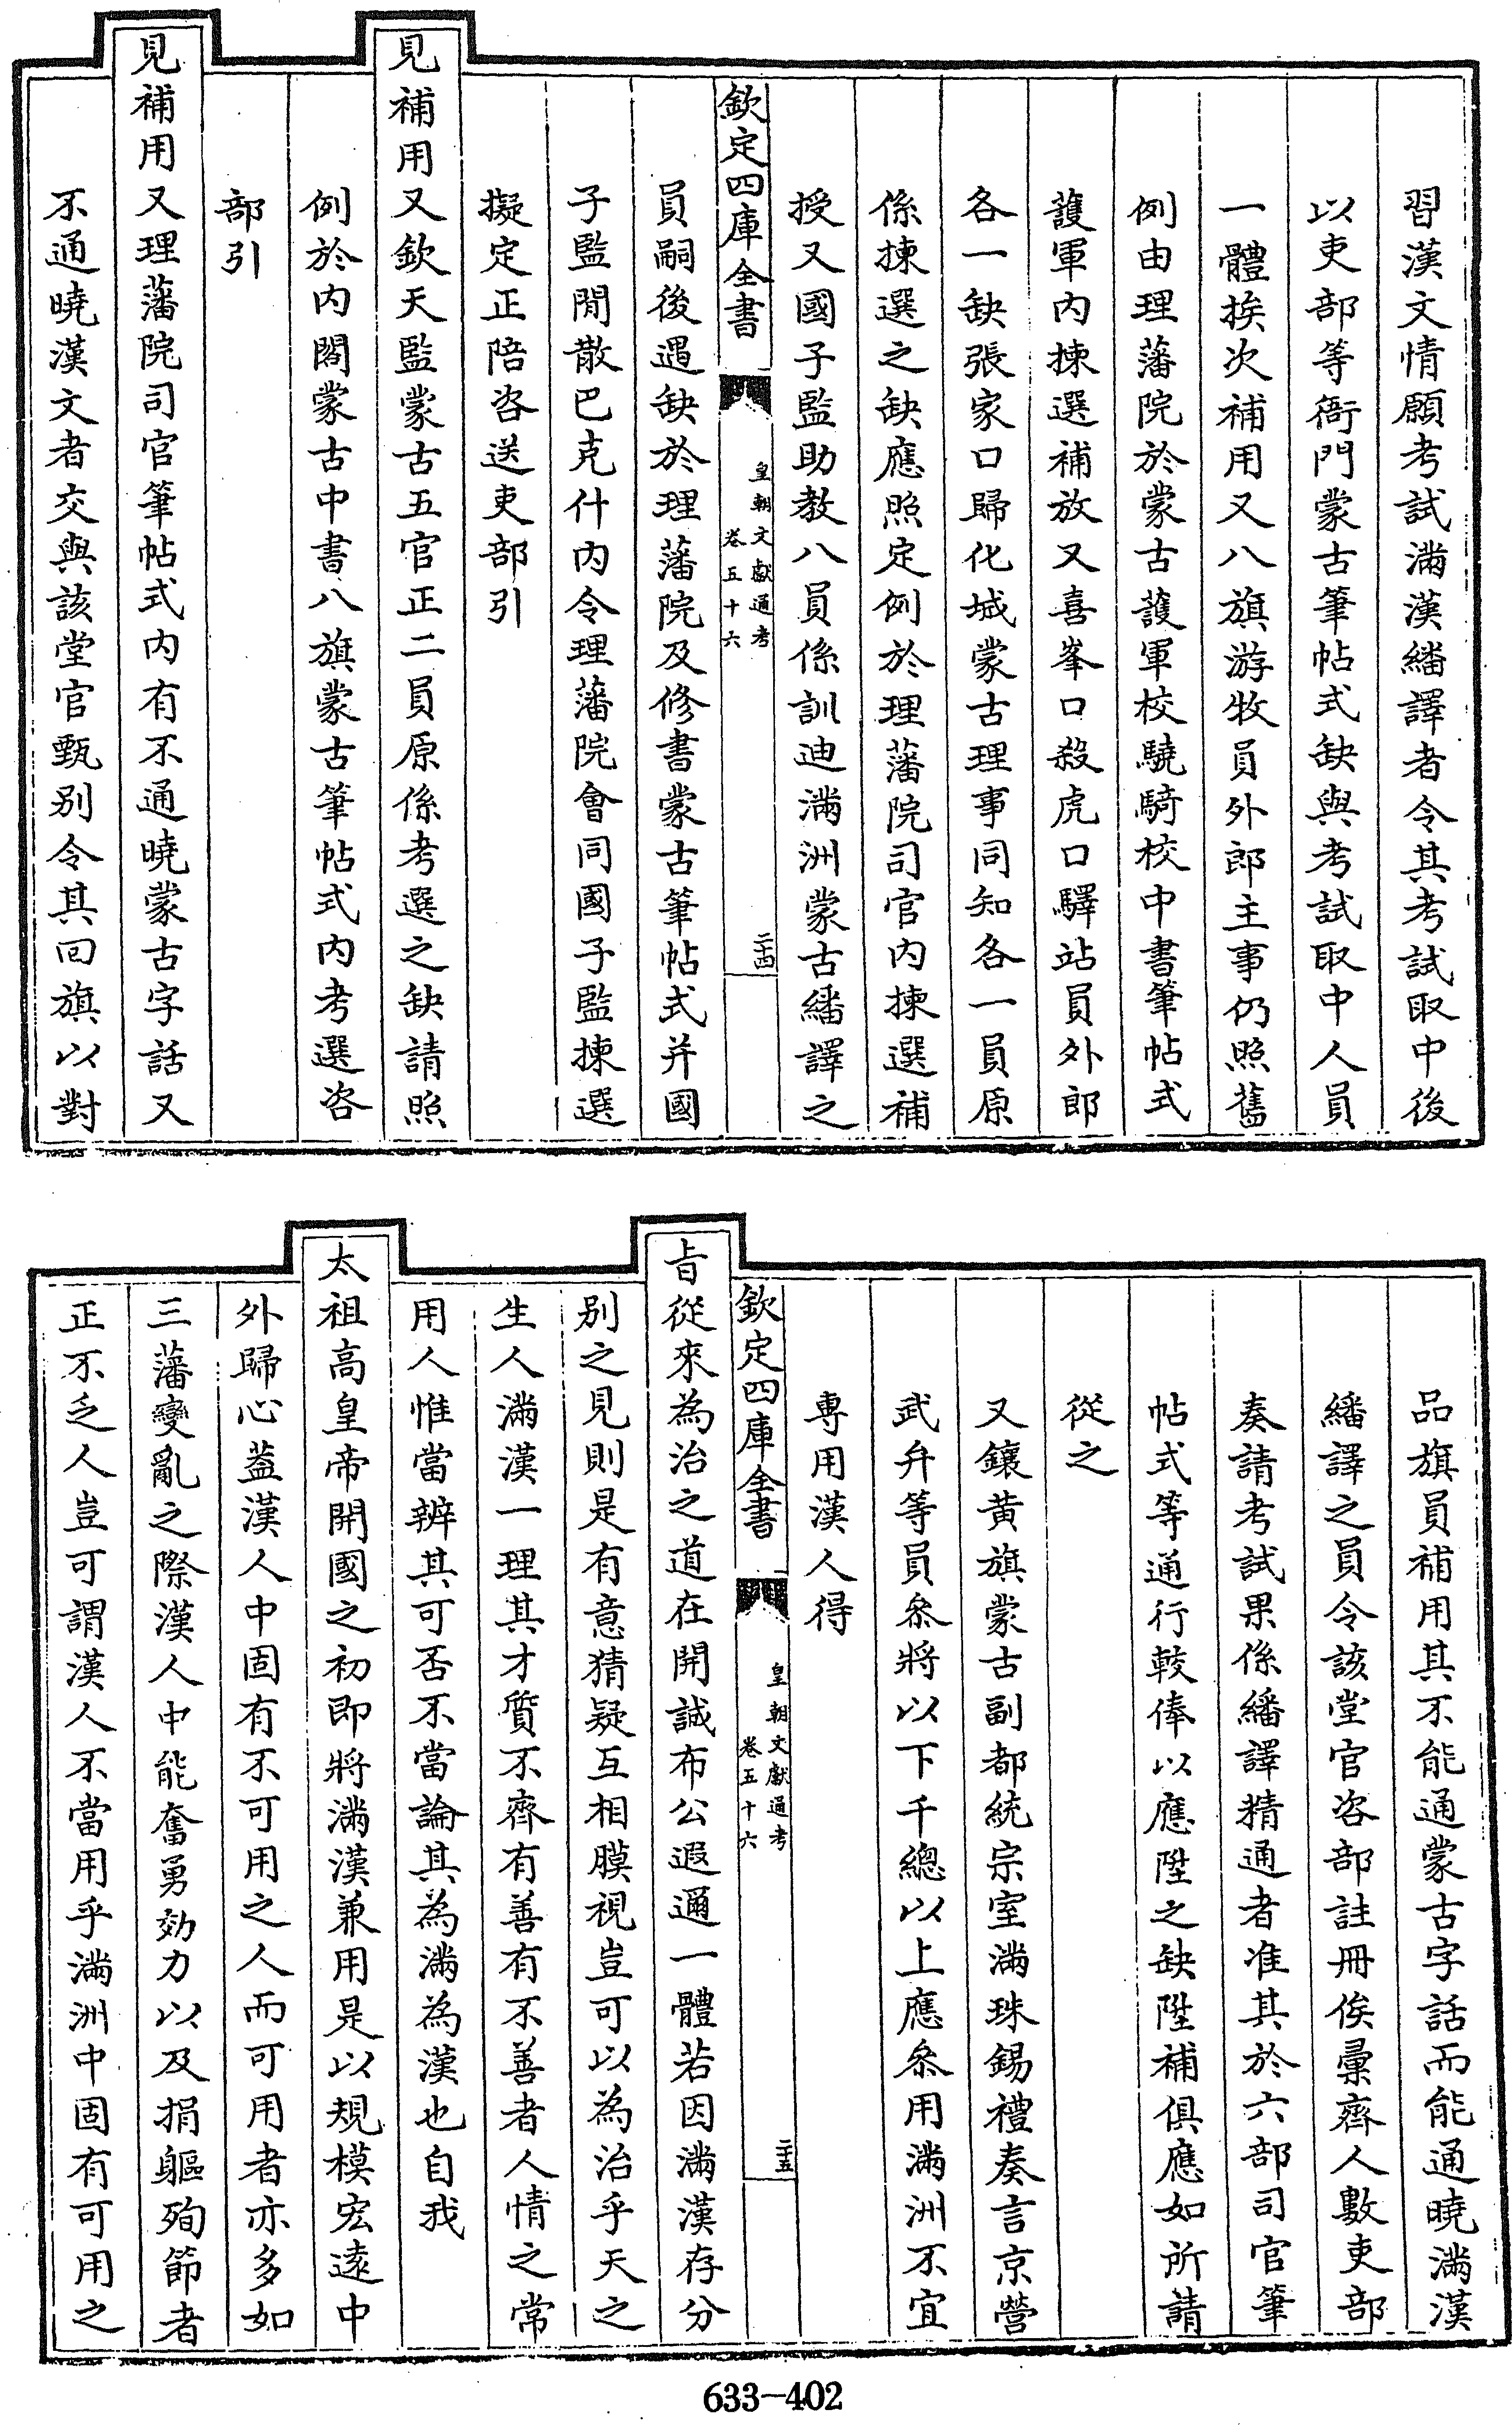 習漢文情願考試滿漢繙譯者令其考試取中後
以吏部等衙門蒙古筆帖式缺與考試取中人員
一體挨次補用又八旗游牧員外郎主事仍照舊
例由理藩院於蒙古護軍校驍騎校中書筆帖式
護軍内揀選補放又喜峯口殺虎口驛站員外郎
各一缺張家口歸化城蒙古理事同知各一員原
係揀選之缺應照定例於理藩院司官内揀選補
授又國子監助教八員係訓迪滿洲蒙古繙譯之
欽定四庫全書
皇朝文獻通考
卷五十六
二十四
員嗣後遇缺於理藩院及修書蒙古筆帖式并國
子監閒散巴克什内令理藩院會同國子監揀選
擬定正陪咨送吏部引
見補用又欽天監蒙古五官正二員原係考選之缺請照
例於内閣蒙古中書八旗蒙古筆帖式内考選咨
部引
見補用又理藩院司官筆帖式内有不通曉蒙古字話又
不通曉漢文者交與該堂官甄别令其回旗以對
品旗員補用其不能通蒙古字話而能通曉滿漢
繙譯之員令該堂官咨部註冊俟彚齊人數吏部
奏請考試果係繙譯精通者准其於六部司官筆
帖式等通行較俸以應陞之缺陞補俱應如所請
從之
又鑲黄旗蒙古副都統宗室滿珠錫禮奏言京營
武弁等員叅將以下千總以上應叅用滿洲不宜
専用漢人得
欽定四庫全書
皇朝文獻通考
卷五十六
二十五
㫖從來為治之道在開誠布公遐邇一體若因滿漢存分
别之見則是有意猜疑互相膜視豈可以為治乎天之
生人滿漢一理其才質不齊有善有不善者人情之常
用人惟當辨其可否不當論其為滿為漢也自我
太祖高皇帝開國之初即將滿漢兼用是以規模宏逺中
外歸心葢漢人中固有不可用之人而可用者亦多如
三藩變亂之際漢人中能奮勇効力以及捐軀殉節者
正不乏人豈可謂漢人不當用乎滿洲中固有可用之
633-402